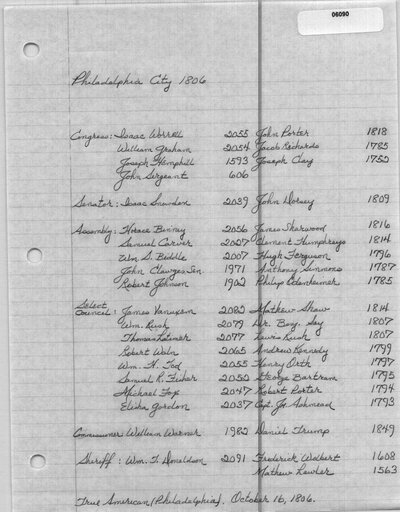 06090
Philadelphia City 1806
Congress: Isaac Worrell 2055 John Porter 1818
William Graham 2054 Jacob Richards 1785
Joseph Hemphill 1593 Joseph Clay 1752
John Sergeant 606
Senator: Isaac Snowden 2039 John Dorsey 1809
Assembly: Horace Binney 2056 James Sharwood 1816
Samuel Carver 2027 Clement Humphreys 1814
Wm. S. Biddle 2007 Hugh Ferguson 1796
John Clawges Sen 1971 Anthony Simmons 1787
Robert Johnson 1902 Philip Odenheimer 1785
Select
Council: James Vanuxem 2082 Mathew Shaw 1814
Wm. Rush 2079 Dr. Benj. Say 1807
Thomas Latimer 2077 Lewis Rush 1807
Robert Waln 2065 Andrew Kennedy 1799
Wm. H. Tod 2055 Henry Orth 1797
Samuel R. Fisher 2052 George Bartram 1795
Michael Fox 2047 Robert Porter 1794
Elisha Gordon 2037 Capt. Jos Ashmead 1793
Commissioner: William Warner 1982 Daniel Trump 1849
Sheriff: Wm. T. Donaldson 2091 Frederick Wolbert 1608
Mathew Lawler 1563
True American (Philadelphia). October 16, 1806.